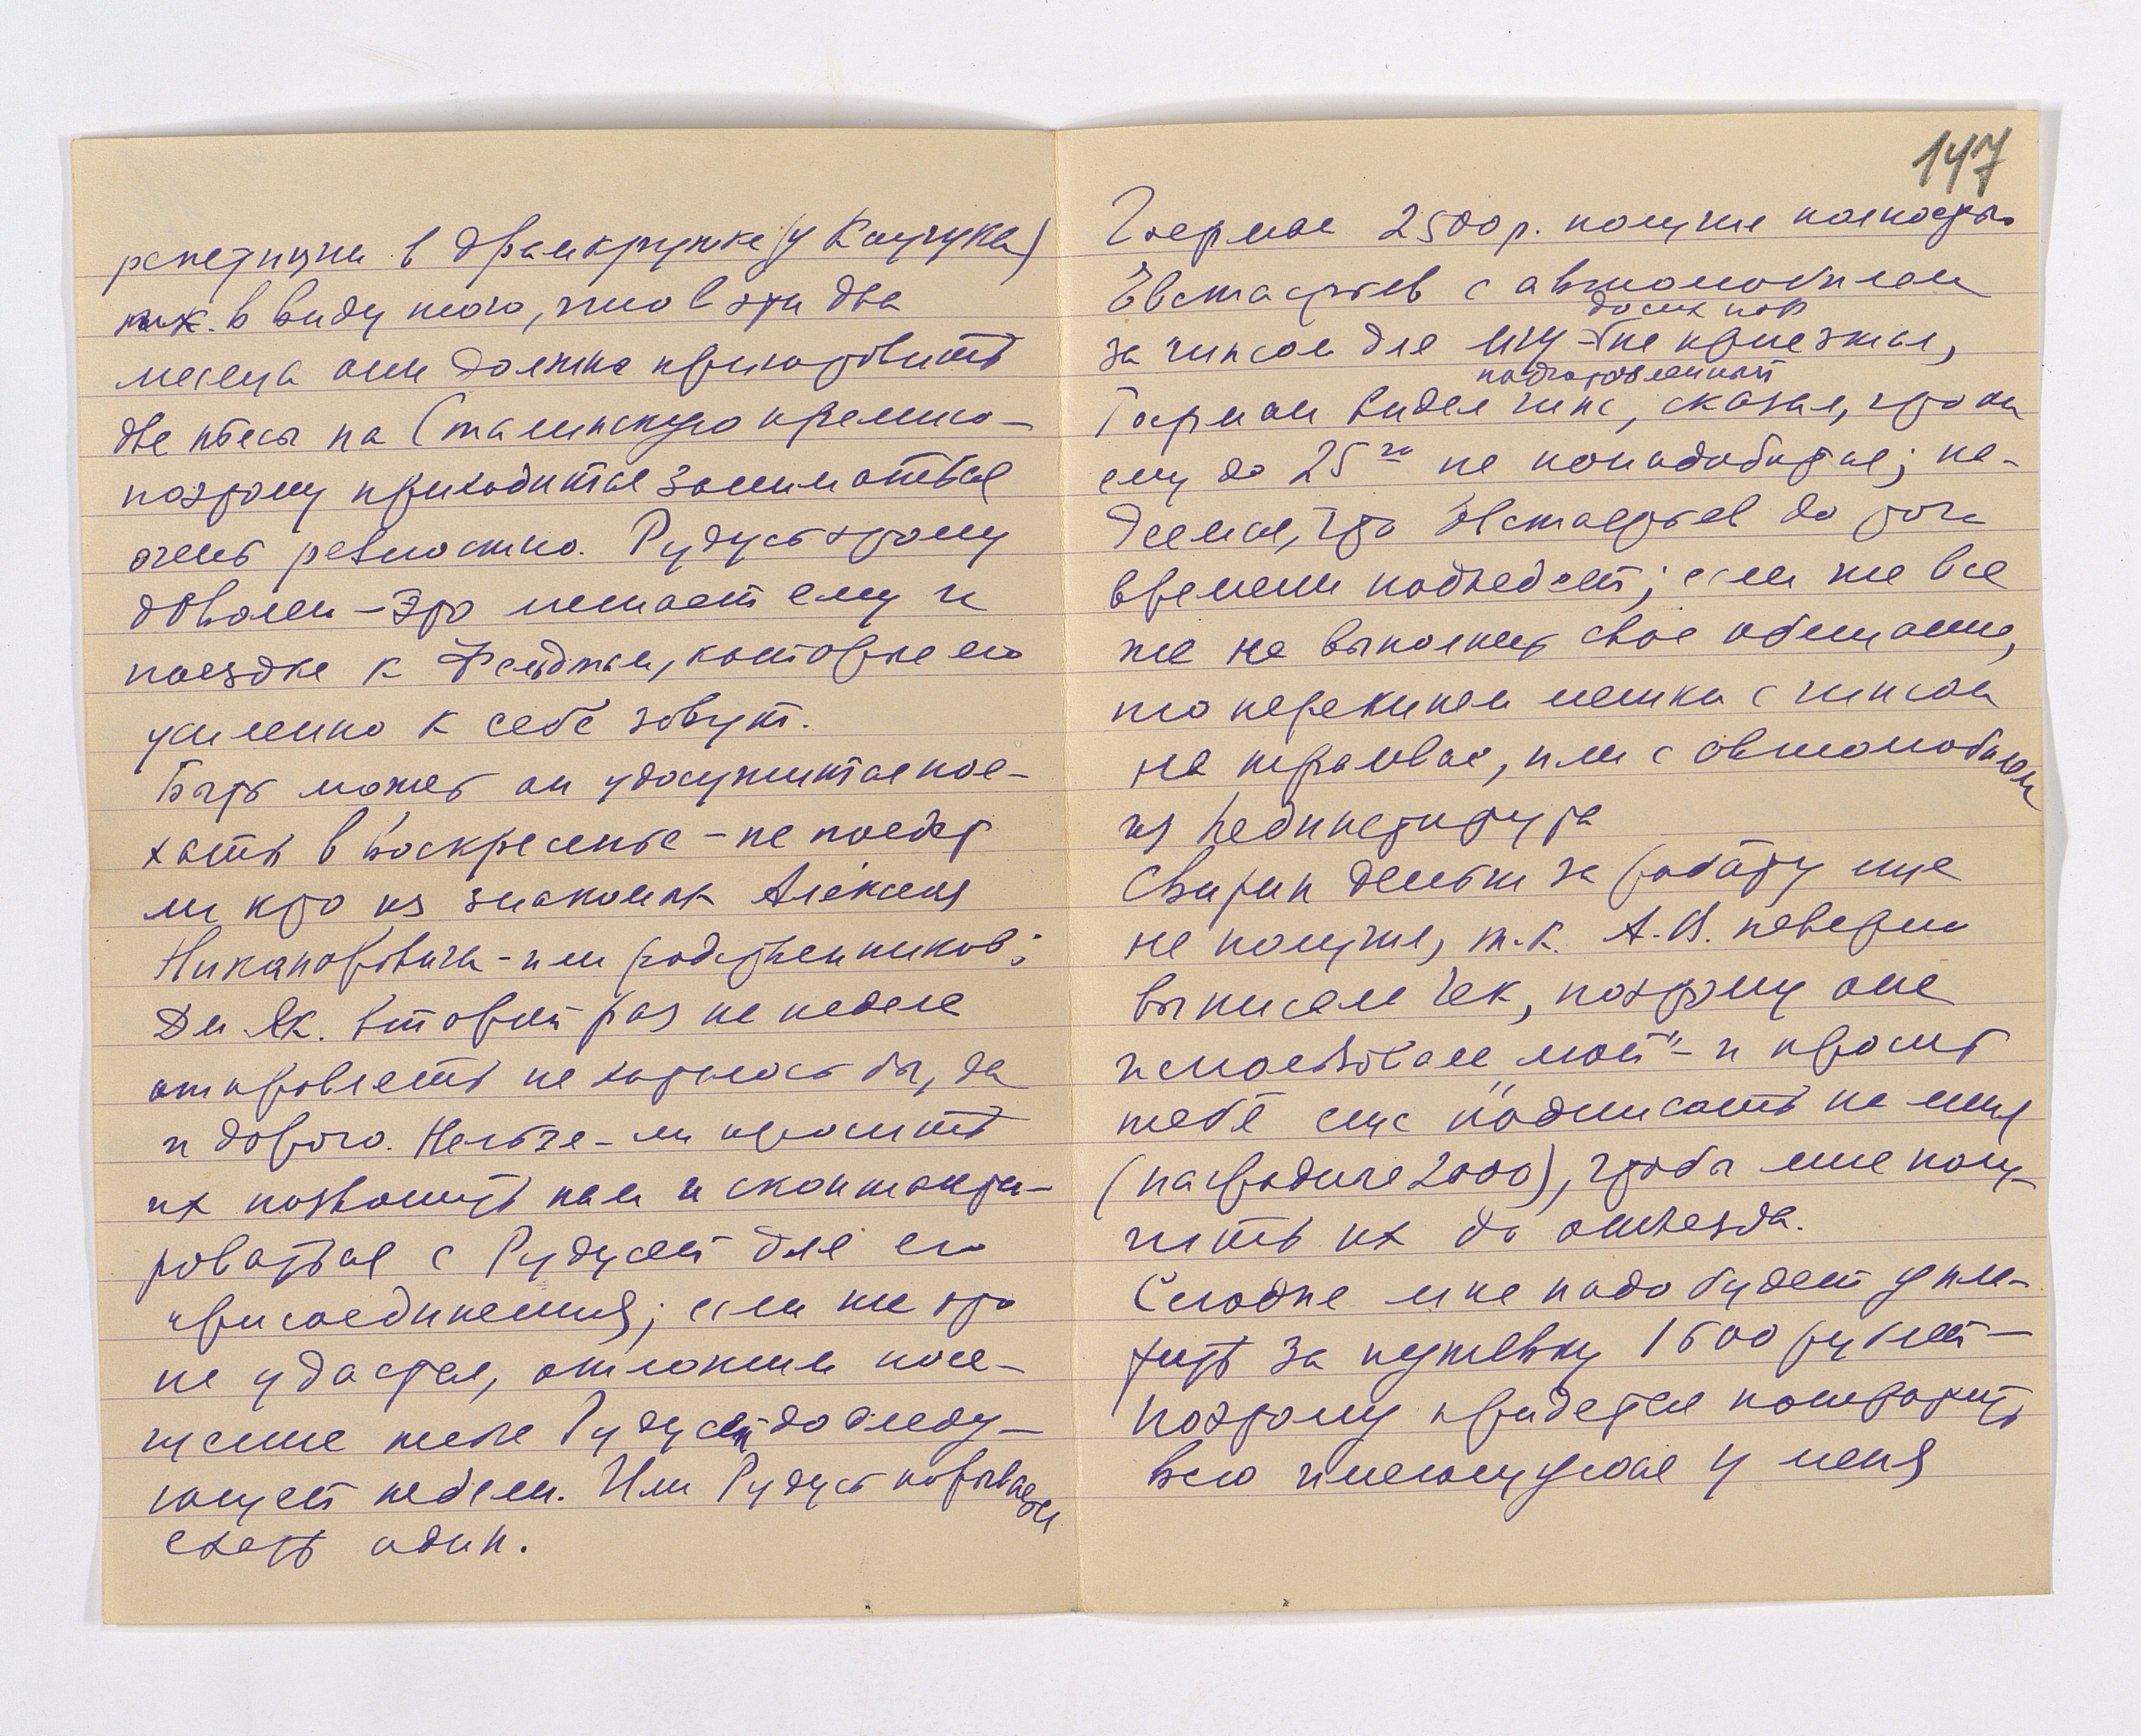 репетиции в драмкружке (у Каучука)
т.к. в виду того, что в эти два
месяца они должны приготовить
две пьесы на Сталинскую премию –
поэтому приходится заниматься
очень ревностно. Рудусь этому
доволен – Это мешает ему и
поездке к Фельдман, которые его
усиленно к себе зовут.
Быть может он удосужится пое-
хать в воскресенье – не поедет
ли кто из знакомых Алексея
Никаноровича – или родственников;
Дм Як. второй раз на неделе
отправлять не хотелось бы, да
и дорого. Нельзя – ли просить
их позвонить нам и сконтакти-
роваться с Рудусей для его
присоединения; если же это
не удастся, отложим посе-
щение тебя Рудусей до следу-
ющей недели. Или Рудусь
ехать один.
147
2500 р. получил полностью
Евстафьев с автомобилем
до сих пор
за гипсом для МГУ – не приезжал,
подготовленный
Герман видел гипс, сказал, что он
ему до 25го не понадобится; на-
деемся, что Евстафьев до того
времени подъедет; если же все
же не выполнит свое обещание,
то перекинем мешки с гипсом
на трамвае, или с автомобилем
из Пединститута
Свирин деньги за работу еще
не получил, т.к. А.В. неверно
выписали чек, поэтому они
использовали „мой“ – и просят
тебя еще подписать на меня
2000), чтобы мне полу-
чить их до отъезда.
Сегодня мне надо будет упла-
тить за путевку 1600 рублей –
поэтому придется потратить
всю имеющуюся у меня